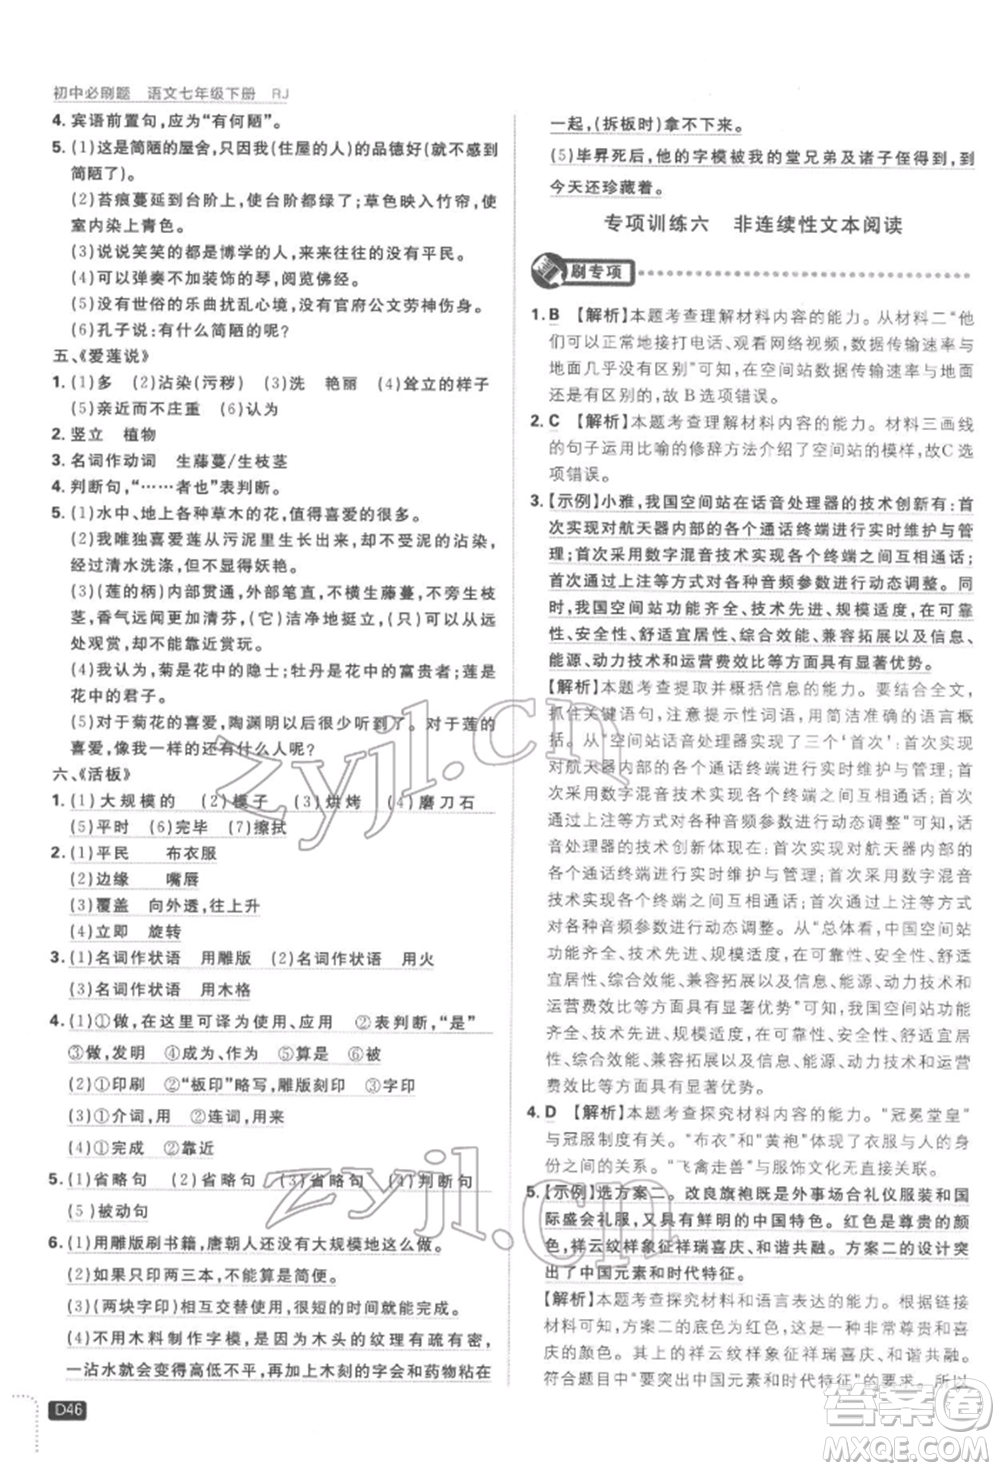 初中必刷题 语文七年级下册 RJ
4. 宾语前置句,应为“有何陋”。
5. (1)这是简陋的屋舍,只是我(住屋的人)的品德好(就不感到
简陋了)。
(2)苔痕蔓延到台阶上,使台阶都绿了;草色映入竹帘,使
室内染上青色。
(3)说说笑笑的都是博学的人,来来往往的没有平民。
(4)可以弹奏不加装饰的琴,阅览佛经。
(5)没有世俗的乐曲扰乱心境,没有官府公文劳神伤身。
(6)孔子说:有什么简陋的呢?
五、《爱莲说》
1. (1)多 (2)沾染(污秽) (3)洗 艳丽 (4)耸立的样子
(5)亲近而不庄重 (6)认为
2. 竖立 植物
3. 名词作动词 生藤蔓/生枝茎
4. 判断句,“……者也”表判断。
5. (1)水中、地上各种草木的花,值得喜爱的很多。
(2)我唯独喜爱莲从污泥里生长出来,却不受泥的沾染,
经过清水洗涤,但是不显得妖艳。
(3)(莲的柄)内部贯通,外部笔直,不横生藤蔓,不旁生枝
茎,香气远闻更加清芬,(它)洁净地挺立着,(只)可以从远
处观赏,却不能靠近赏玩。
(4)我认为,菊是花中的隐士;牡丹是花中的富贵者;莲是
花中的君子。
(5)对于菊花的喜爱,陶渊明以后很少听到了。对于莲的
喜爱,像我一样的还有什么人呢?
六、《活板》
1. (1)大规模的 (2)模子 (3)烘烤 (4)磨刀石
(5)平时 (6)完毕 (7)擦拭
2. (1)平民 布衣服
(2)边缘 嘴唇
(3)覆盖 向外透,往上升
(4)立即 旋转
3. (1)名词作状语 用雕版 (2)名词作状语 用火
(3)名词作状语 用木格
4. (1)①做,在这里可译为使用、应用 ②表判断,“是”
③做,发明 ④成为、作为 ⑤算是 ⑥被
(2)①印刷 ②“板印”略写,雕版刻印 ③字印
(3)①介词,用 ②连词,用来
(4)①完成 ②靠近
5. (1)省略句 (2)省略句 (3)省略句 (4)判断句
(5)被动句
6. (1)用雕版刷书籍,唐朝人还没有大规模地这么做。
(2)如果只印两三本,不能算是简便。
(3)(两块字印)相互交替使用,很短的时间就能完成。
(4)不用木料制作字模,是因为木头的纹理有疏有密,
一沾水就会变得高低不平,再加上木刻的字会和药物粘在
D46
一起,(拆板时)拿不下来。
(5)毕昇死后,他的字模被我的堂兄弟及诸子侄得到,到
今天还珍藏着。
专项训练六 非连续性文本阅读
刷专项
1. B 【解析】本题考查理解材料内容的能力。从材料二“他
们可以正常地接打电话、观看网络视频,数据传输速率与
地面几乎没有区别”可知,在空间站数据传输速率与地面
还是有区别的,故B选项错误。
2. C 【解析】本题考查理解材料内容的能力。材料三画线
的句子运用比喻的修辞方法介绍了空间站的模样,故C选
项错误。
3. 【示例】小雅,我国空间站在话音处理器的技术创新有:首
次实现对航天器内部的各个通话终端进行实时维护与管
理;首次采用数字混音技术实现各个终端之间互相通话;
首次通过上注等方式对各种音频参数进行动态调整。同
时,我国空间站功能齐全、技术先进、规模适度,在可靠
性、安全性、舒适宜居性、综合效能、兼容拓展以及信息、
能源、动力技术和运营费效比等方面具有显著优势。
【解析】本题考查提取并概括信息的能力。要结合全文,
抓住关键语句,关注提示性词语,用简洁准确的语言概括
信息。从“空间站话音处理器实现了三个‘首次’:首次实
现对航天器内部的各个通话终端进行实时维护与管理;首
次采用数字混音技术实现各个终端之间互相通话;首次通
过上注等方式对各种音频参数进行动态调整”可知,话
音处理器的技术创新体现在:首次实现对航天器内部的
各个通话终端进行实时维护与管理;首次采用数字混音
技术实现各个终端之间互相通话;首次通过上注等方式
对各种音频参数进行动态调整。从“总体看,中国空间站
功能齐全、技术先进、规模适度,在可靠性、安全性、舒适
宜居性、综合效能、兼容拓展以及信息、能源、动力技术和
运营费效比等方面具有显著优势”可知,我国空间站功能
齐全、技术先进、规模适度,在可靠性、安全性、舒适宜居
性、综合效能、兼容拓展以及信息、能源、动力技术和运营
费效比等方面具有显著优势。
4. D 【解析】本题考查探究材料内容的能力。“冠冕堂皇”
与冠服制度有关。“布衣”和“黄袍”体现了衣服与人的身
份地位的关系。“飞禽走兽”与服饰文化无关。故选D。
5. 【示例】选方案二。改良旗袍既是外事场合礼仪服装和国
际盛会礼服,又具有鲜明的中国特色。红色是尊贵的颜
色,祥云纹样象征祥瑞喜庆、和谐共融。方案二的设计突
出了中国元素和时代特征。
【解析】本题考查探究材料和语言表达的能力。根据链接
材料可知,方案二的底色为红色,红色是非常尊贵和喜
庆的颜色,而它上面的祥云纹样象征祥瑞喜庆,和谐共融。
符合题目要求的“突出中国元素和时代特征”。所以
zyjl.cn
zyjl.cn
答案圈
MXQE.COM